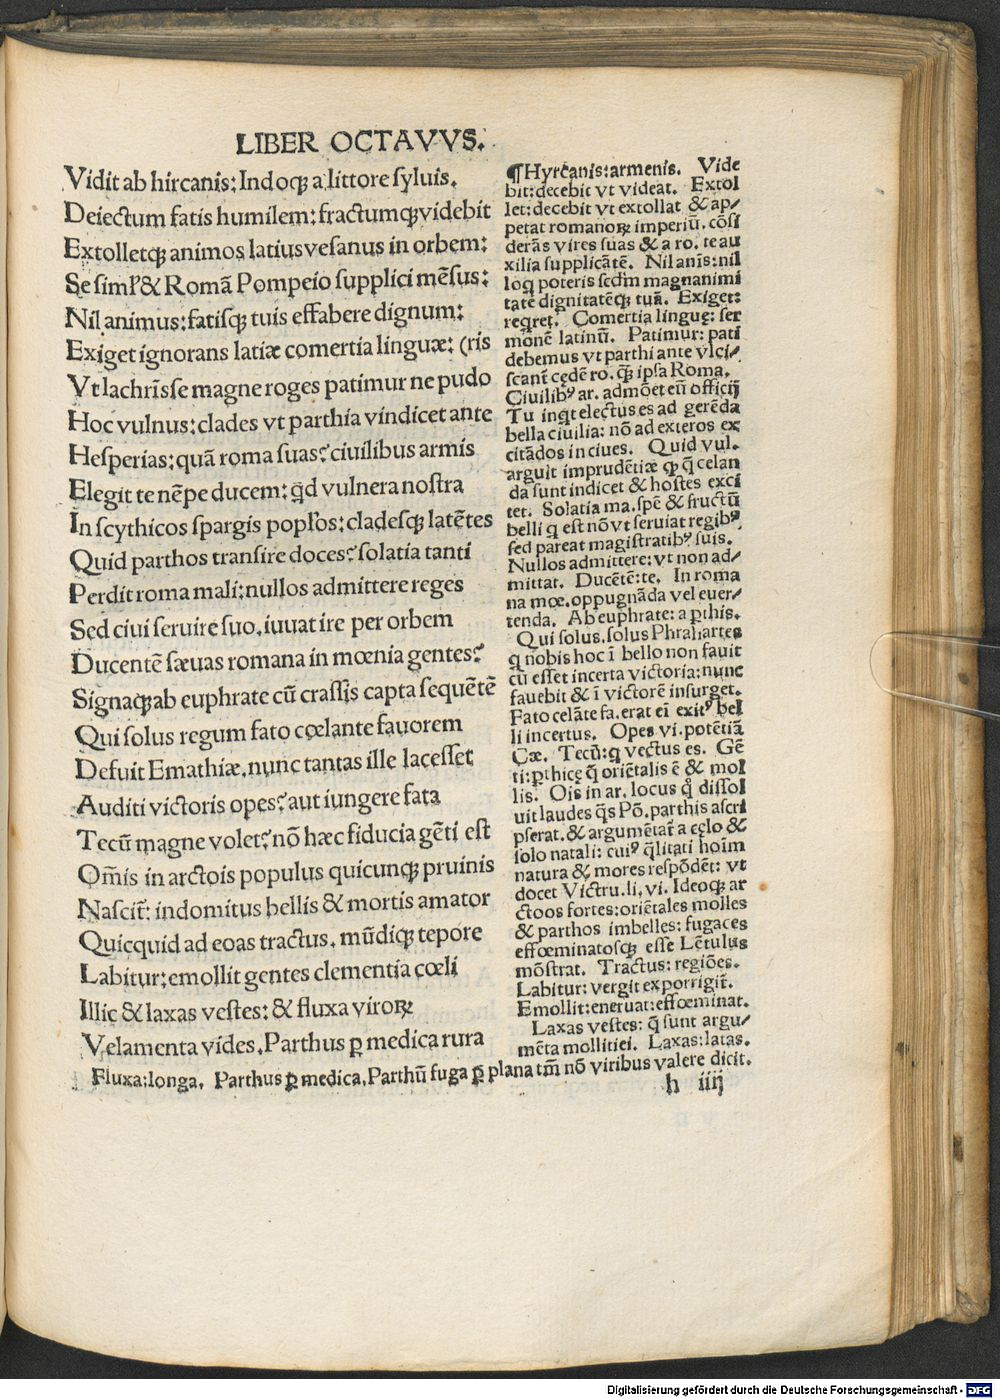 LIBER OCTAVVS.
Vidit ab hircanis: Indoqꝫ a littore syluis.
Deiectum fatis humilem: fractumqꝫ videbit
Extolletqꝫ animos latius vesanus in orbem:
Se siml̓ & Romã Pompeio supplici mẽsus:
Nil animus: fatisqꝫ tuis effabere dignum:
Exiget ignorans latiæ comertia linguæ: (ris
Vt lachrĩs se magne roges patimur ne pudo
Hoc vulnus: clades vt parthia vindicet ante
Hesperias: quã roma suas? ciuilibus armis
Elegit te nẽpe ducem: qd̓ vulnera nostra
In scythicos spargis popl̓os: cladesqꝫ latẽtes
Quid parthos transire doces? solatia tanti
Perdit roma mali: nullos admittere reges
Sed ciui seruire suo. iuuat ire per orbem
Ducentẽ sæuas romana in mœnia gentes?
Signaqꝫ ab euphrate cũ crassis capta sequẽtẽ
Qui solus regum fato cœlante fauorem
Defuit Emathiæ. nunc tantas ille lacesset
Auditi victoris opes? aut iungere fata
Tecũ magne volet? nõ hæc fiducia gẽti est
Om̃is in arctois populus quicunqꝫ pruinis
Nascit̃: indomitus bellis & mortis amator
Quicquid ad eoas tractus. mũdiqꝫ tepore
Labitur: emollit gentes clementia cœli
Illic & laxas vestes: & fluxa viroꝝ
Velamenta vides. Parthus ꝑ medica rura
¶Hyrcanis: armenis. Vide
bit: decebit vt videat. Extol
let: decebit vt extollat & ap⸗
petat romanoꝝ imperiũ. cõsi
derãs vires suas & a ro. te au
xilia supplicãtẽ. Nil anĩs: nil
loq̃ poteris scd̃m magnanimi
tatẽ dignitatẽqꝫ tuã. Exiget:
reqret. Comertia linguę: ser
monẽ latinũ. Patimur: pati
debemus vt parthi ante vlci⸗
scant̃ cędẽ ro. qꝫ ipsa Roma.
Ciuilibꝰ ar. admõet eũ officij
Tu inqt electus es ad gerẽda
bella ciuilia: nõ ad exteros ex
citãdos in ciues. Quid vul.
arguit imprudẽtiæ qꝫ q̃ celan
da sunt indicet & hostes exci
tet. Solatia ma. spẽ & fructũ
belli q est nõ vt seruiat regibꝰ
sed pareat magistratibꝰ suis.
Nullos admittere: vt non ad⸗
mittat. Ducẽtẽ: te. In roma
na mœ. oppugnãda vel euer⸗
tenda. Ab euphrate: a ꝑthis.
Qui solus. solus Phrahartes
q nobis hoc ĩ bello non fauit
cũ esset incerta victoria: nunc
fauebit & ĩ victorẽ insurget.
Fato celãte fa. erat eĩ exitꝰ bel
li incertus. Opes vi. potẽtiã
Cæ. Tecũ: q victus es. Gẽ
ti: ꝑthicę q̃ oriẽtalis ẽ & mol
lis. Oĩs in ar. locus q̊ dissol
uit laudes q̃s Põ. parthis ascri
pserat. & argumẽtat̃ a cęlo &
solo natali: cuiꝰ q̃litati hoĩm
natura & mores respõdẽt: vt
docet Victru. li. vi. Ideoqꝫ ar
ctoos fortes: oriẽtales molles
& parthos imbelles: fugaces
effœminatosqꝫ esse Lẽtulus
mõstrat. Tractus: regiões.
Labitur: vergit ex porrigit̃.
Emollit: eneruat: effœminat.
Laxas vestes: q̃ sunt argu⸗
mẽta mollitiei. Laxas: latas.
Fluxa: longa. Parthus ꝑ medica. Parthũ fuga ꝑ plana tm̃ nõ viribus valere dicit.
h iiij
Digitalisierung gefördert durch die Deutsche Forschungsgemeinschaft - DFG